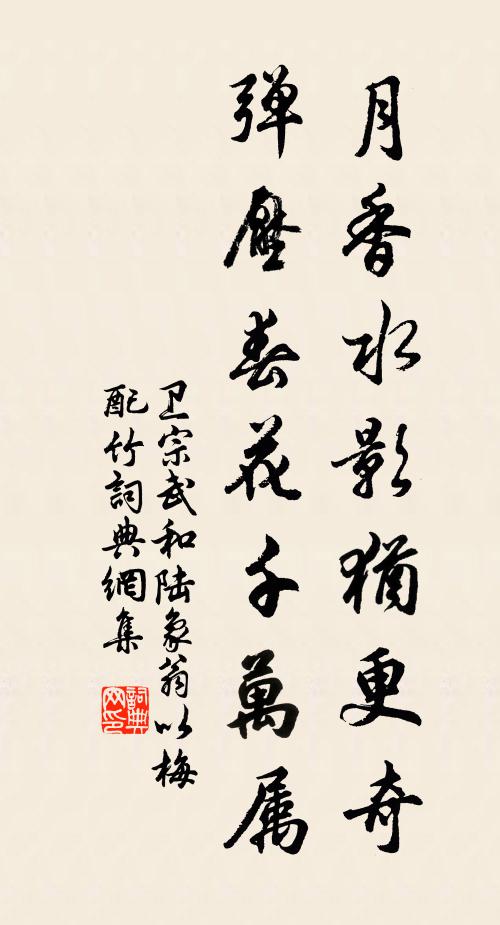 月香水影猶更奇
弹壓春花千萬属
卫宗武和陆象翁以梅
配竹詞典網集
詞典网印